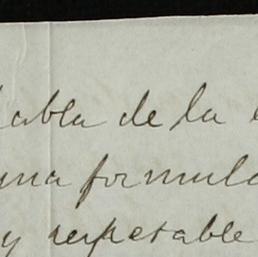 habla de la
una formula
y respetable